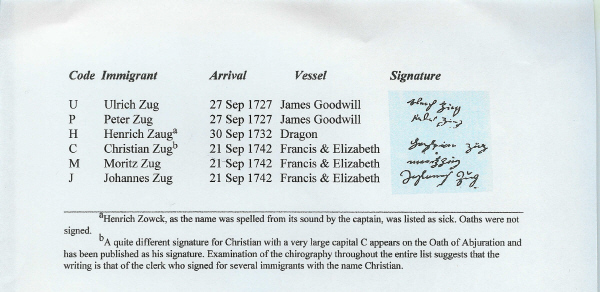 Code Immigrant Arrival Vessel Signature
U Ulrich Zug 27 Sep 1727 James Goodwill
P Peter Zug 27 Sep 1727 James Goodwill
H Henrich Zaugᵃ 30 Sep 1732 Dragon
C Christian Zugᵇ 21 Sep 1742 Francis & Elizabeth
M Moritz Zug 21 Sep 1742 Francis & Elizabeth
J Johannes Zug 21 Sep 1742 Francis & Elizabeth
ᵃHenrich Zowck, as the name was spelled from its sound by the captain, was listed as sick. Oaths were not
signed.
ᵇA quite different signature for Christian with a very large capital C appears on the Oath of Abjuration and
has been published as his signature. Examination of the chirography throughout the entire list suggests that the
writing is that of the clerk who signed for several immigrants with the name Christian.